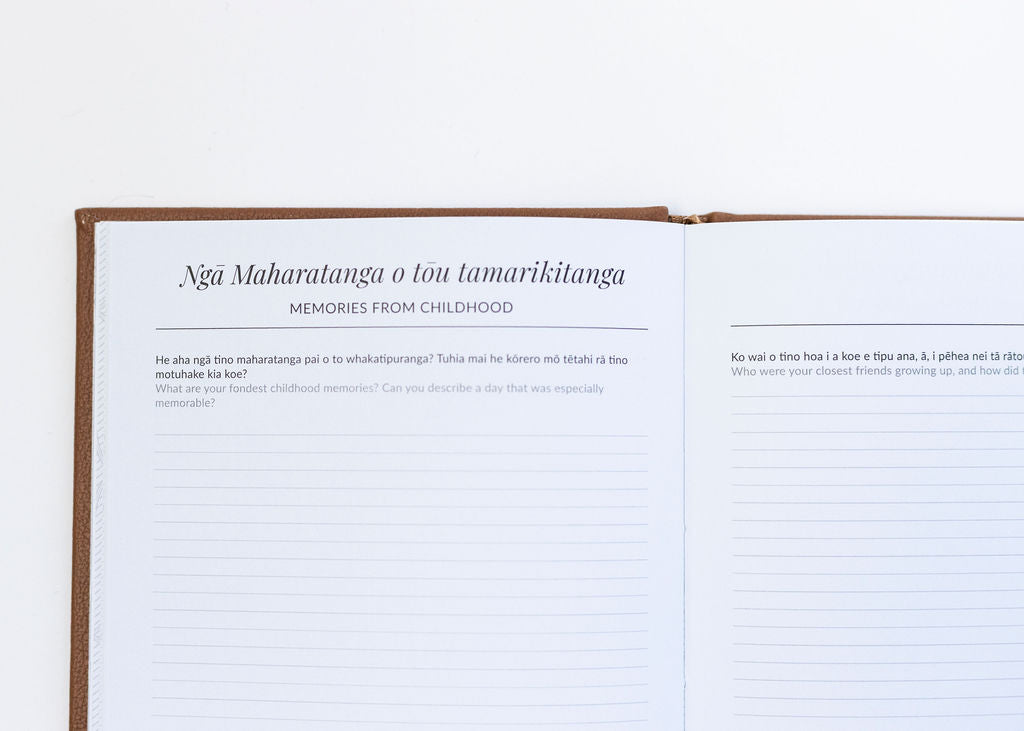 Ngā Maharatanga o tōu tamarikitanga
MEMORIES FROM CHILDHOOD
He aha ngā tino maharatanga pai o to whakatipuranga? Tuhia mai he kōrero mō tētahi rā tino
motuhake kia koe?
What are your fondest childhood memories? Can you describe a day that was especially
memorable?
Ko wai o tino hoa i a koe e tipu ana, ā, i pēhea nei tā
Who were your closest friends growing up, and how did